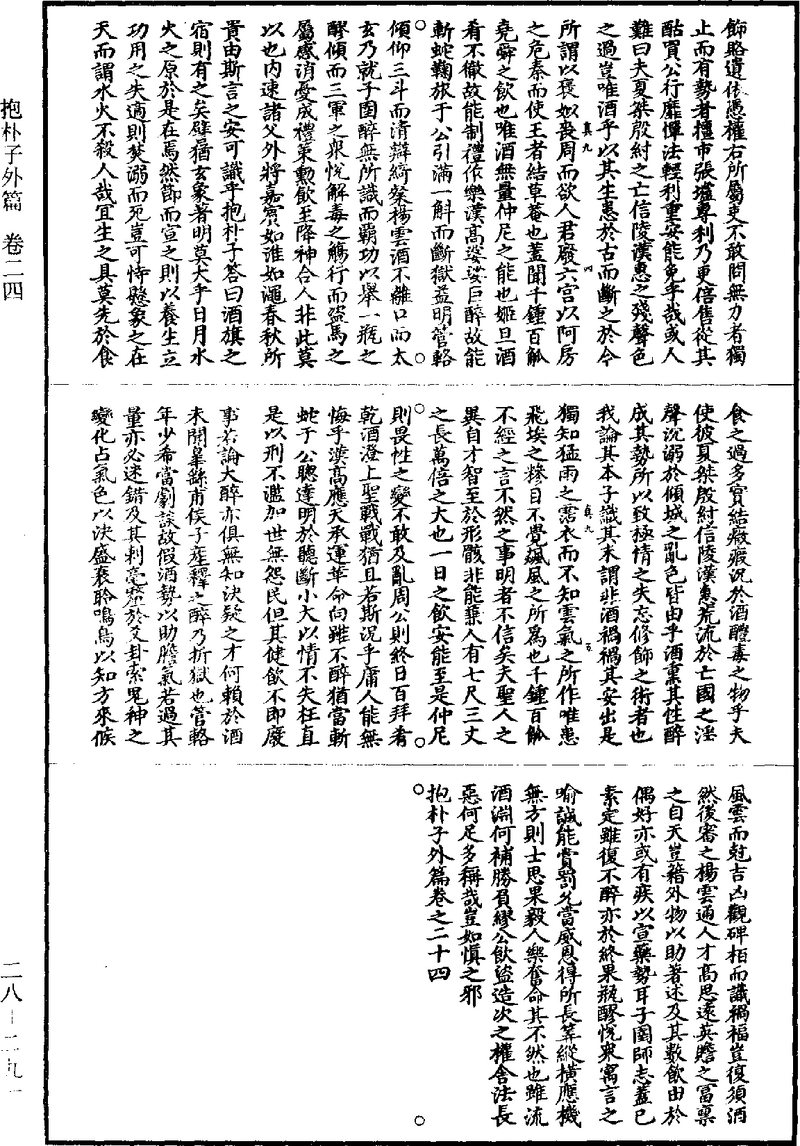 飾賂遺依憑權右所屬吏不敢問無力者獨
止而有勢者擅市張壚專利乃更倍售從其
酤買公行靡憚法輕利重安能免乎哉或人
難曰夫夏桀殷紂之亡信陵漢惠之殘聲色
之過豈唯酒乎以其生患於古而斷之於今
所謂以褒姒喪周而欲人君廢六宮以阿房
之危秦而使王者結草菴也蓋聞千鍾百觚
堯舜之飲也唯酒無量仲尼之能也姬旦酒
肴不徹故能制禮作樂漢高婆娑巨醉故能
斬蛇鞠旅于公引滿一斛而斷獄益明管輅
傾仰三斗而清辯綺粲楊雲酒不離口而太
玄乃就子圉醉無所識而霸功以舉一瓶之
醪傾而三軍之衆悅解毒之觴行而盜馬之
屬感消憂成禮策勳飲至降神合人非此莫
以也内速諸父外將嘉賓如淮如澠春秋所
貴由斯言之安可識乎抱朴子答曰酒旗之
宿則有之矣譬猶玄象著明莫大乎日月水
火之原於是在焉然節而宣之則以養生立
功用之失適則焚溺而死豈可恃懸象之在
天而謂水火不殺人哉宜生之具莫先於食
食之過多實結癥瘕況於酒醴毒之物乎夫
使彼夏桀殷紂信陵漢惠荒流於亡國之淫
聲沉溺於傾城之亂色皆由乎酒熏其性醉
成其勢所以致極情之失忘修飾之術者也
我論其本子識其末謂非酒禍禍其安出是
獨知猛雨之霑衣而不知雲氣之所作唯患
飛埃之糝目不覺飆風之所爲也千鍾百觚
不經之言不然之事明者不信矣夫聖人之
異自才智至於形骸非能兼人有七尺三丈
之長萬倍之大也一日之飲安能至是仲尼
則畏性之變不敢及亂周公則終日百拜肴
乾酒澄上聖戰戰猶且若斯況乎庸人能無
悔乎漢高應天承運革命向雖不醉猶當斬
蛇于公聰達明於聽斷小大以情不失枉直
是以刑不濫加世無怨民但其健飲不即廢
事若論大醉亦俱無知決疑之才何賴於酒
未聞皐繇甫侯子產釋之醉乃折獄也管輅
年少希當劇談故假酒勢以助膽氣若過其
量亦必迷錯及其刺毫釐於爻卦索鬼神之
變化占氣色以決盛衰聆鳴鳥以知方來候
風雲而尅吉凶觀碑柏而識禍福豈復須酒
然後審之楊雲通人才高思遠英贍之富稟
之自天豈藉外物以助著述及其數飲由於
偶好亦或有疾以宣藥勢耳子圉師志蓋已
素定雖復不醉亦於終果瓶醪悅衆寓言之
喻誠能賞罰允當威恩得所長筭縱橫應機
無方則士思果毅人樂奮命其不然也雖流
酒淵何補勝負繆公飲盜造次之權舍法長
惡何足多稱哉豈如慎之邪
抱朴子外篇卷之二十四
抱朴子外篇 卷二四
二八—二九一